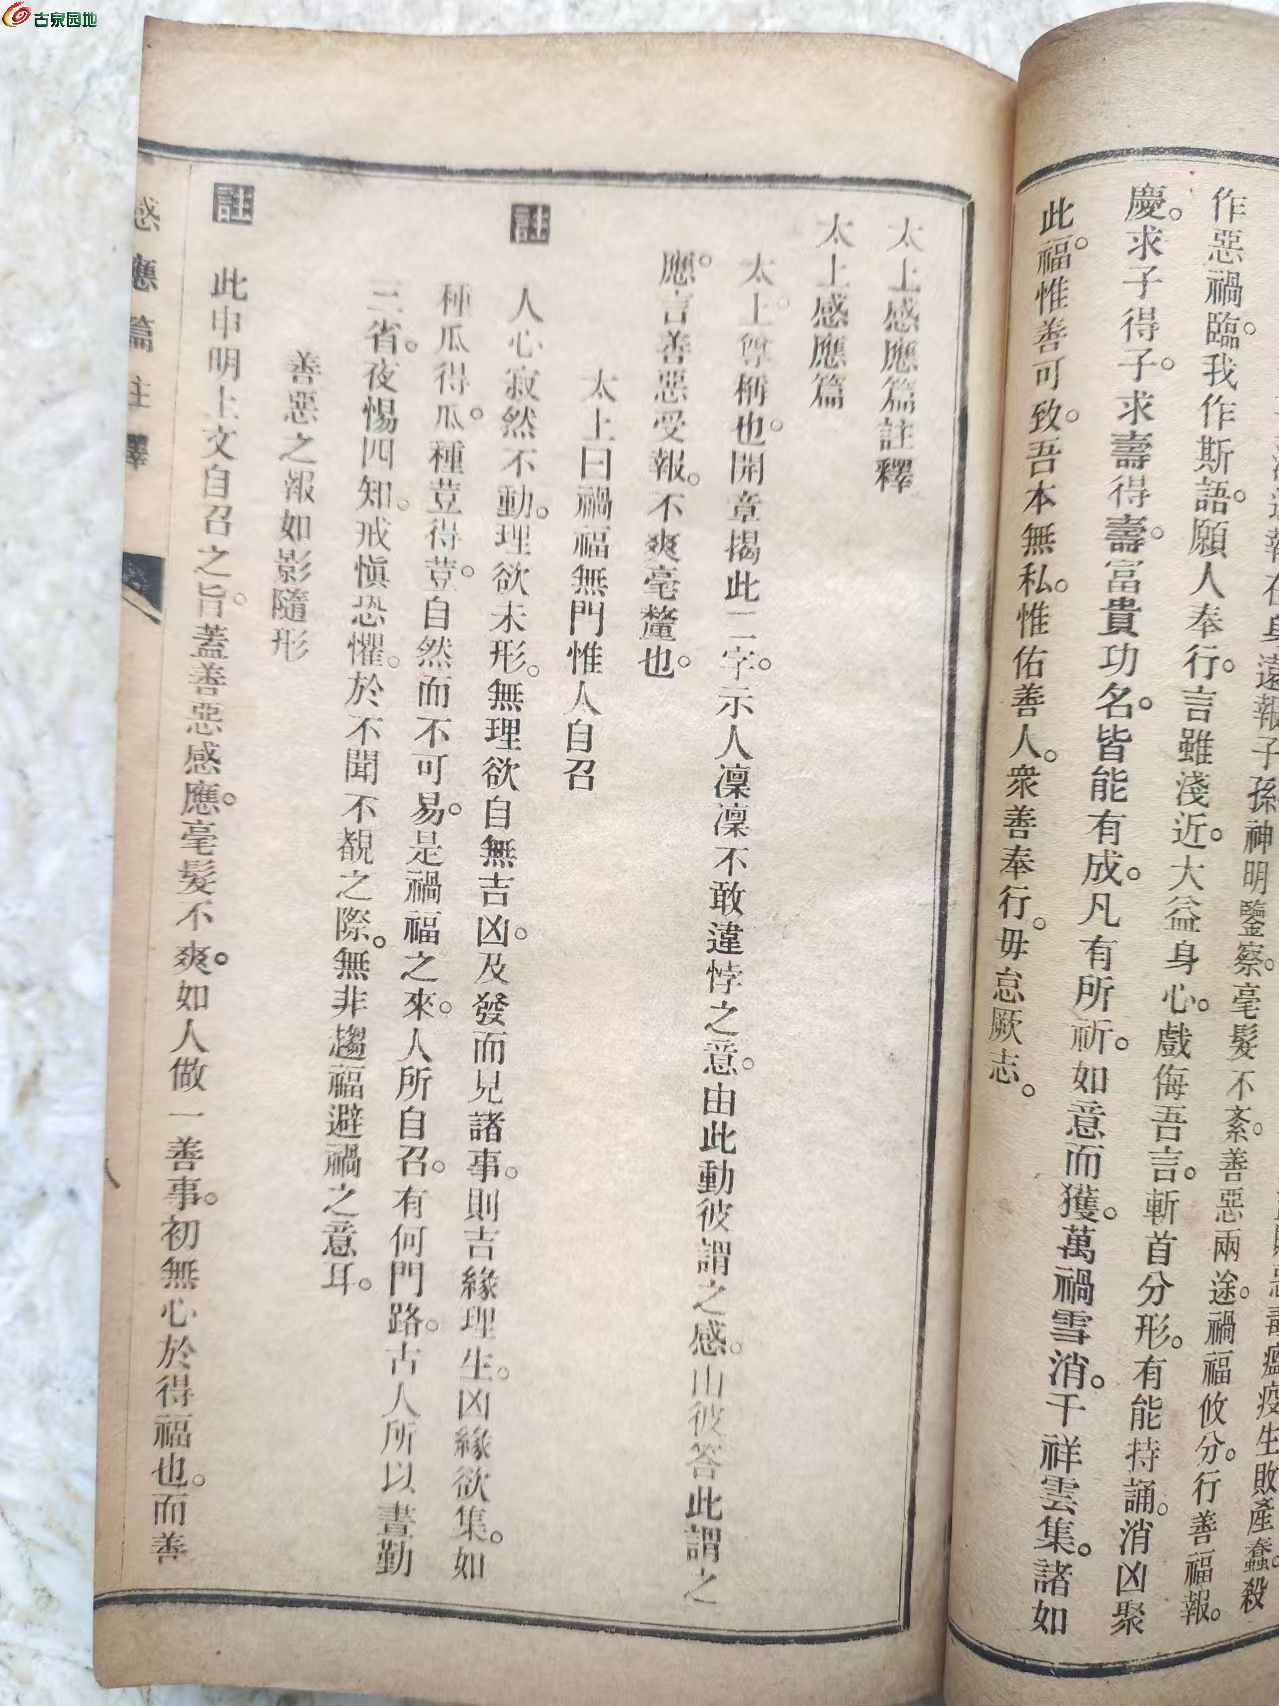 古泉园地
報在身遠報子孫神明鑒察。毫髮不紊。善惡兩途。禍福攸分。行善福報。
作惡禍臨。我作斯語。願人奉行。言雖淺近。大益身心。戲侮吾言。斬首分形。有能持誦。消凶聚
慶。求子得子。求壽得壽。富貴功名。皆能有成。凡有所祈。如意而獲。萬禍雪消。千祥雲集。諸如
此。福惟善可致。吾本無私。惟佑善人。衆善奉行。毋怠厥志。
太上感應篇註釋
太上感應篇
太上。尊稱也。開章揭此二字。示人凜凜不敢違悖之意。由此動彼謂之感。由彼答此謂之
應。言善惡受報。不爽毫釐也。
太上曰禍福無門惟人自召
註
人心寂然不動。理欲未形。無理欲自無吉凶。及發而見諸事。則吉緣理生。凶緣欲集。如
種瓜得瓜。種荳得荳。自然而不可易。是禍福之來。人所自召。有何門路。古人所以晝勤
三省。夜惕四知。戒慎恐懼。於不聞不覩之際。無非趨福避禍之意耳。
善惡之報如影隨形
註
此申明上文自召之旨。蓋善惡感應。毫髮不爽。如人做一善事。初無心於得福也。而善
感應篇註釋